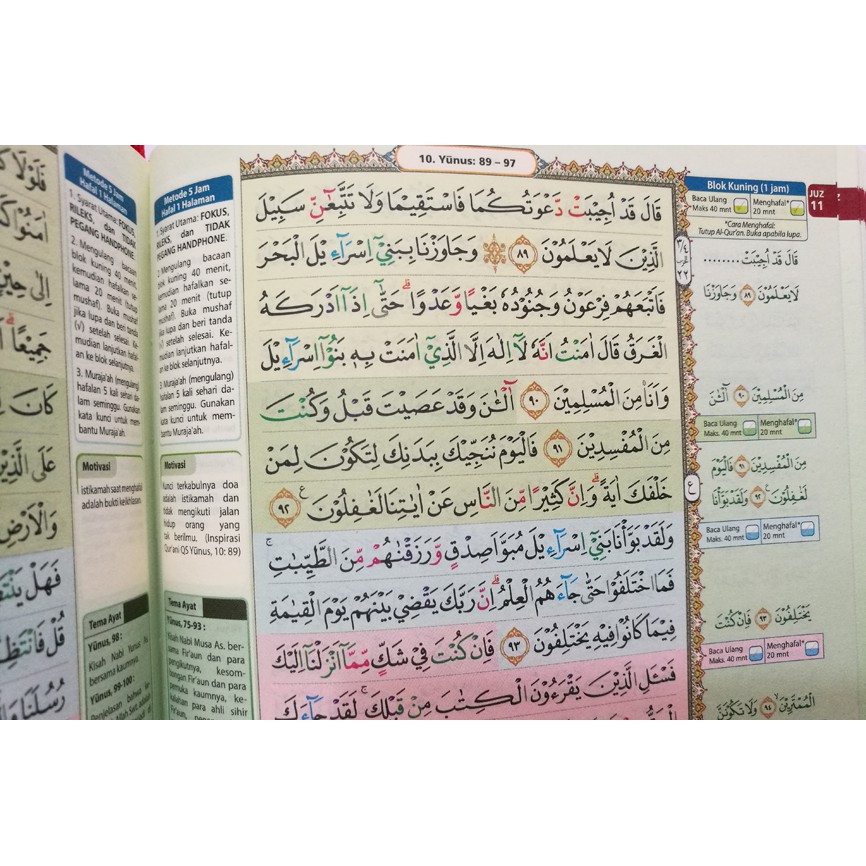 10. Yūnus: 89 – 97
قَالَ قَدْ اُجِيْبَتْ دَّعْوَتُكُمَا فَاسْتَقِيْمَا وَلَا تَتَّبِعٰۤنِّ سَبِيْلَ
الَّذِيْنَ لَا يَعْلَمُوْنَ ٨٩ وَجَاوَزْنَا بِبَنِيْٓ اِسْرَاۤءِيْلَ الْبَحْرَ
فَاَتْبَعَهُمْ فِرْعَوْنُ وَجُنُوْدُهٗ بَغْيًا وَّعَدْوًا ۗحَتّٰىٓ اِذَآ اَدْرَكَهُ
الْغَرَقُ قَالَ اٰمَنْتُ اَنَّهٗ لَآ اِلٰهَ اِلَّا الَّذِيْٓ اٰمَنَتْ بِهٖ بَنُوْٓا اِسْرَاۤءِيْلَ
وَاَنَا۠ مِنَ الْمُسْلِمِيْنَ ٩٠ اٰۤلْـٰٔنَ وَقَدْ عَصَيْتَ قَبْلُ وَكُنْتَ
مِنَ الْمُفْسِدِيْنَ ٩١ فَالْيَوْمَ نُنَجِّيْكَ بِبَدَنِكَ لِتَكُوْنَ لِمَنْ
خَلْفَكَ اٰيَةً ۗوَاِنَّ كَثِيْرًا مِّنَ النَّاسِ عَنْ اٰيٰتِنَا لَغٰفِلُوْنَ ࣖ ٩٢
وَلَقَدْ بَوَّأْنَا بَنِيْٓ اِسْرَاۤءِيْلَ مُبَوَّاَ صِدْقٍ وَّرَزَقْنٰهُمْ مِّنَ الطَّيِّبٰتِ ۚ
فَمَا اخْتَلَفُوْا حَتّٰى جَاۤءَهُمُ الْعِلْمُ ۗاِنَّ رَبَّكَ يَقْضِيْ بَيْنَهُمْ يَوْمَ الْقِيٰمَةِ
فِيْمَا كَانُوْا فِيْهِ يَخْتَلِفُوْنَ ٩٣ فَاِنْ كُنْتَ فِيْ شَكٍّ مِّمَّآ اَنْزَلْنَآ اِلَيْكَ
فَسْـَٔلِ الَّذِيْنَ يَقْرَءُوْنَ الْكِتٰبَ مِنْ قَبْلِكَ ۚ لَقَدْ جَاۤءَكَ
Blok Kuning (1 jam)
Baca Ulang Maks 40 mnt
Menghafal* 20 mnt
*Cara Menghafal:
Tutup Al-Qur'an. Buka apabila lupa.
JUZ
11
قَالَ قَدْ اُجِيْبَتْ ........
لَا يَعْلَمُوْنَ ٨٩ وَجَاوَزْنَا
مِنَ الْمُسْلِمِيْنَ ٩٠ اٰۤلْـٰٔنَ
Baca Ulang Maks. 40 mnt
Menghafal* 20 mnt
مِنَ الْمُفْسِدِيْنَ ٩١ فَالْيَوْمَ
لَغٰفِلُوْنَ ٩٢ وَلَقَدْ بَوَّأْنَا
Baca Ulang Maks. 40 mnt
Menghafal* 20 mnt
يَخْتَلِفُوْنَ ٩٣ فَاِنْ كُنْتَ
Baca Ulang Maks. 40 mnt
Menghafal* 20 mnt
الْمُمْتَرِيْنَ ٩٤ وَلَا تَكُوْنَنَّ
Metode 5 Jam
Hafal 1 Halaman
1. Syarat Utama: FOKUS,
RILEKS, dan TIDAK
PEGANG HANDPHONE.
2. Mengulang bacaan
blok kuning 40 menit,
kemudian hafalkan se-
lama 20 menit (tutup
mushaf). Buka mushaf
jika lupa dan beri tanda
(√) setelah selesai. Ke-
mudian lanjutkan hafal-
an ke blok selanjutnya.
3. Muraja'ah (mengulang)
hafalan 5 kali sehari da-
lam seminggu. Gunakan
kata kunci untuk mem-
bantu Muraja'ah.
Motivasi
Kunci terkabulnya doa
adalah istikamah dan
tidak mengikuti jalan
hidup orang yang
tak berilmu. (Inspirasi
Qur'ani QS Yūnus, 10: 89)
Tema Ayat
Yūnus, 75-93 :
Kisah Nabi Musa As. ber-
sama Fir'aun dan para
pengikutnya, kesom-
bongan Fir'aun dan para
pemuka kaumnya, ke-
kalahan para ahli sihir
Metode 5 Jam
Hafal 1 Halaman
1. Syarat Utama: FOKUS,
RILEKS, dan TIDAK
PEGANG HANDPHONE.
2. Mengulang bacaan
blok kuning 40 menit,
kemudian hafalkan se-
lama 20 menit (tutup
mushaf). Buka mushaf
jika lupa dan beri tanda
(√) setelah selesai. Ke-
mudian lanjutkan hafal-
an ke blok selanjutnya.
3. Muraja'ah (mengulang)
hafalan 5 kali sehari da-
lam seminggu. Gunakan
kata kunci untuk mem-
bantu Muraja'ah.
Motivasi
istikamah saat menghafal
adalah bukti keikhlasan.
Tema Ayat
Yūnus, 98 :
Kisah Nabi Yunus As.
bersama kaumnya.
Yūnus, 99-100 :
Penjelasan bahwa